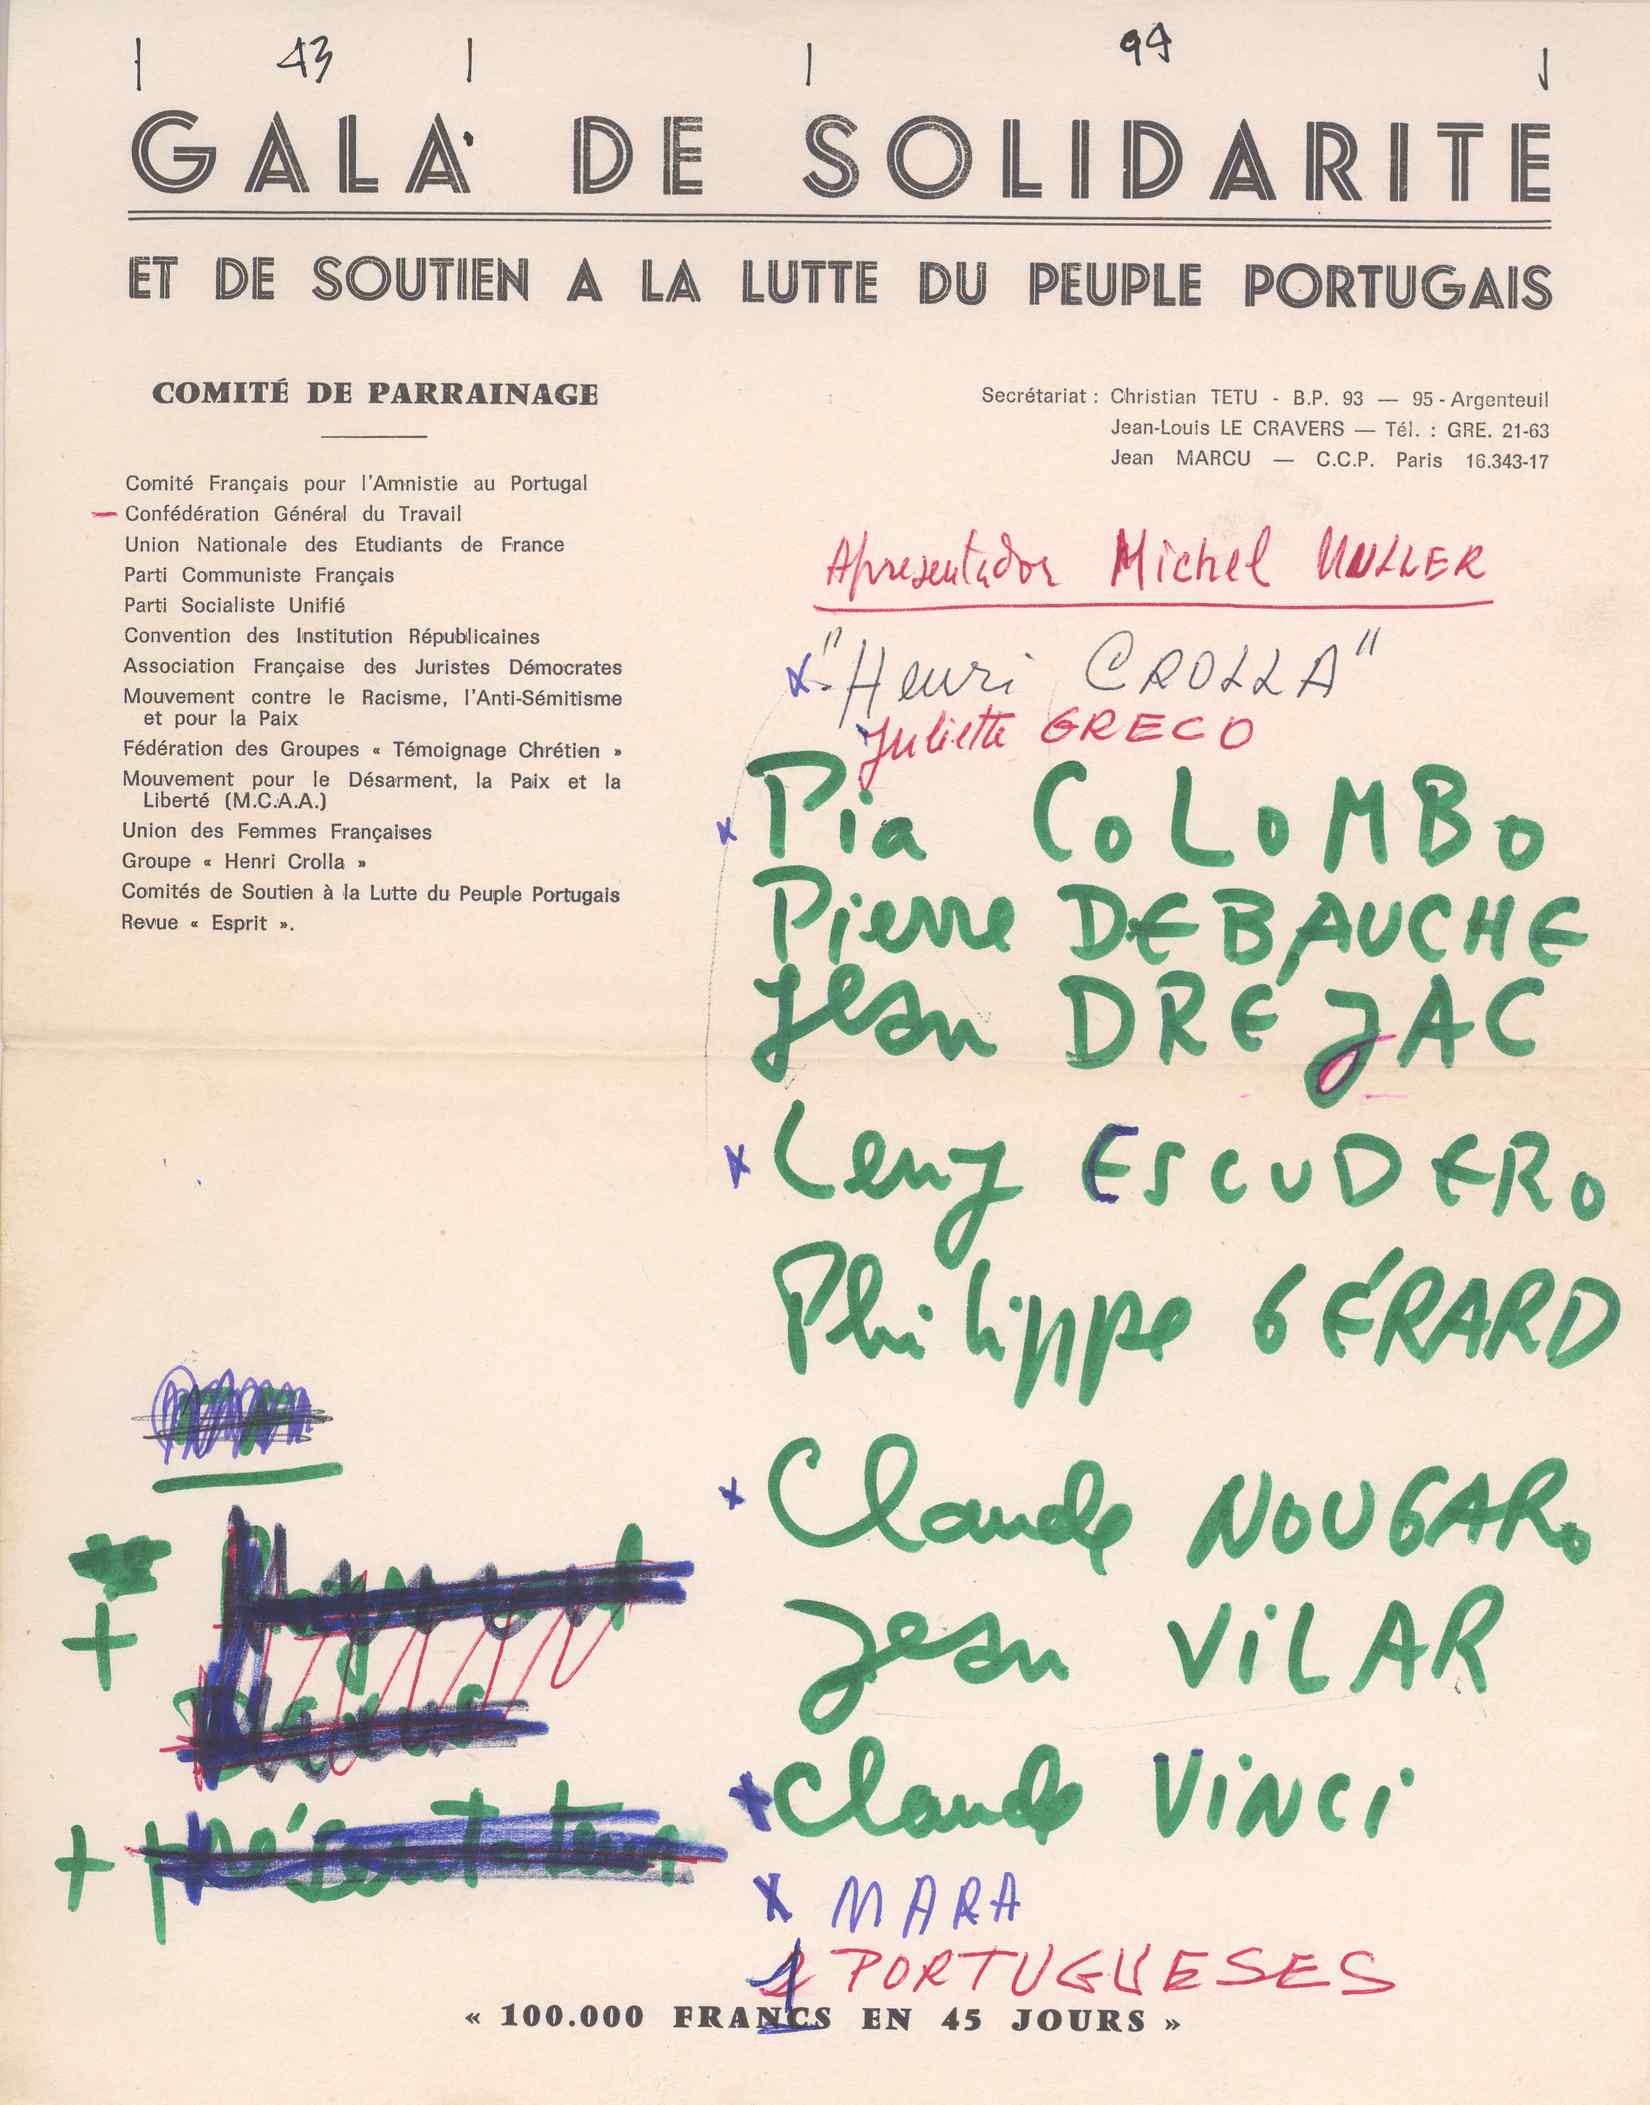 43 94
GALA DE SOLIDARITE
ET DE SOUTIEN A LA LUTTE DU PEUPLE PORTUGAIS
COMITÉ DE PARRAINAGE
Comité Français pour l'Amnistie au Portugal
Confédération Général du Travail
Union Nationale des Etudiants de France
Parti Communiste Français
Parti Socialiste Unifié
Convention des Institution Républicaines
Association Française des Juristes Démocrates
Mouvement contre le Racisme, l'Anti-Sémitisme
et pour la Paix
Fédération des Groupes « Témoignage Chrétien »
Mouvement pour le Désarment, la Paix et la
Liberté (M.C.A.A.)
Union des Femmes Françaises
Groupe « Henri Crolla »
Comités de Soutien à la Lutte du Peuple Portugais
Revue « Esprit ».
Secrétariat : Christian TETU - B.P. 93 — 95 - Argenteuil
Jean-Louis LE CRAVERS — Tél. : GRE. 21-63
Jean MARCU — C.C.P. Paris 16.343-17
Apresentador Michel MULLER
x "Henri CROLLA"
Juliette GRECO
x Pia COLOMBO
Pierre DEBAUCHE
Jean DREJAC
x Leny ESCUDERO
Philippe GÉRARD
x Claude NOUGARo
Jean ViLAR
x Claude ViNCi
x MARA
PORTUGUESES
+
+ présentateur
« 100.000 FRANCS EN 45 JOURS »